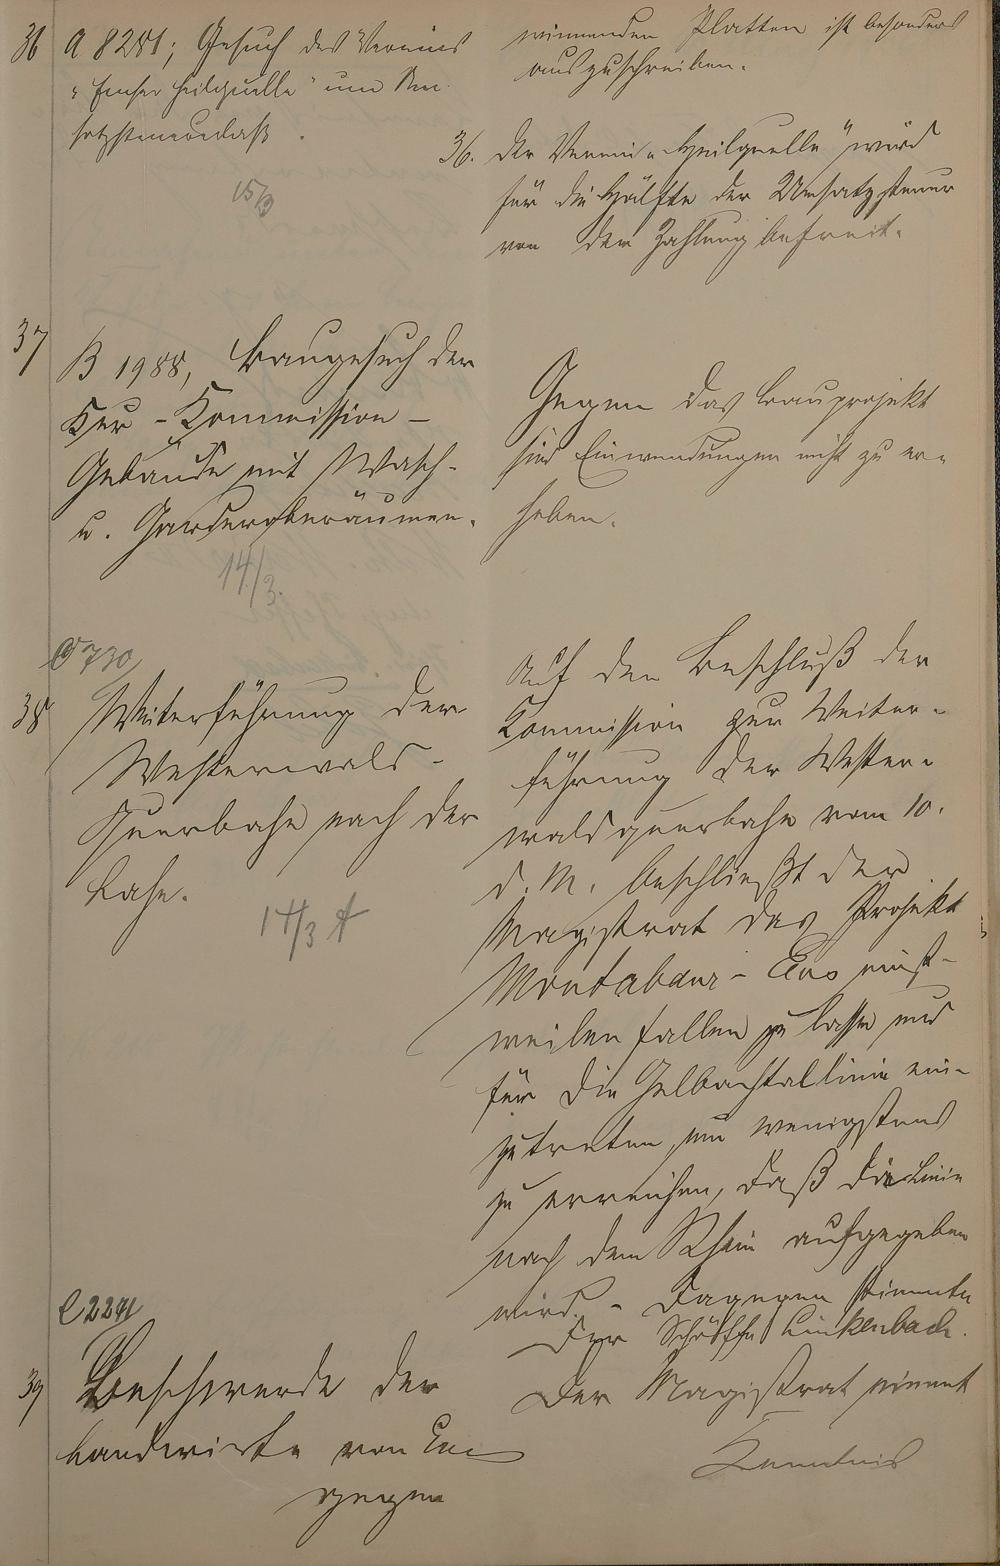 36 A 8281; Gesuch des Vereins
"Emser Heilquelle" um Um-
satzsteuernachlaß.
15/3
37
B 1988, Baugesuch der
Kur-Kommission -
Gebäude mit Wasch-
u. Garderoberäumen.
14/3.
C 730
38 Weiterführung der
Westerwald-
Querbahn nach der
Lahn.
14/3 A
C 2241
39 Beschwerde der
Landwirte von Ems
gegen
Platten ist besonders
auszuschreiben.
36. Der Verein "Heilquelle" wird
für die Hälfte der Umsatzsteuer
von der Zahlung befreit.
Gegen das Bauprojekt
sind Einwendungen nicht zu er-
heben.
Auf den Beschluß der
Kommission zur Weiter-
führung der Wester-
waldquerbahn vom 10.
d. M. beschließt der
Magistrat das Projekt
Montabaur - Ems einst-
weilen fallen zu lassen und
für die Gelbachtallinie ein-
zutreten, um wenigstens
zu erreichen, daß die Linie
nach dem Rhein aufgegeben
wird. - Dagegen stimmte
Herr Schöffe Linkenbach.
Der Magistrat nimmt
Kenntnis